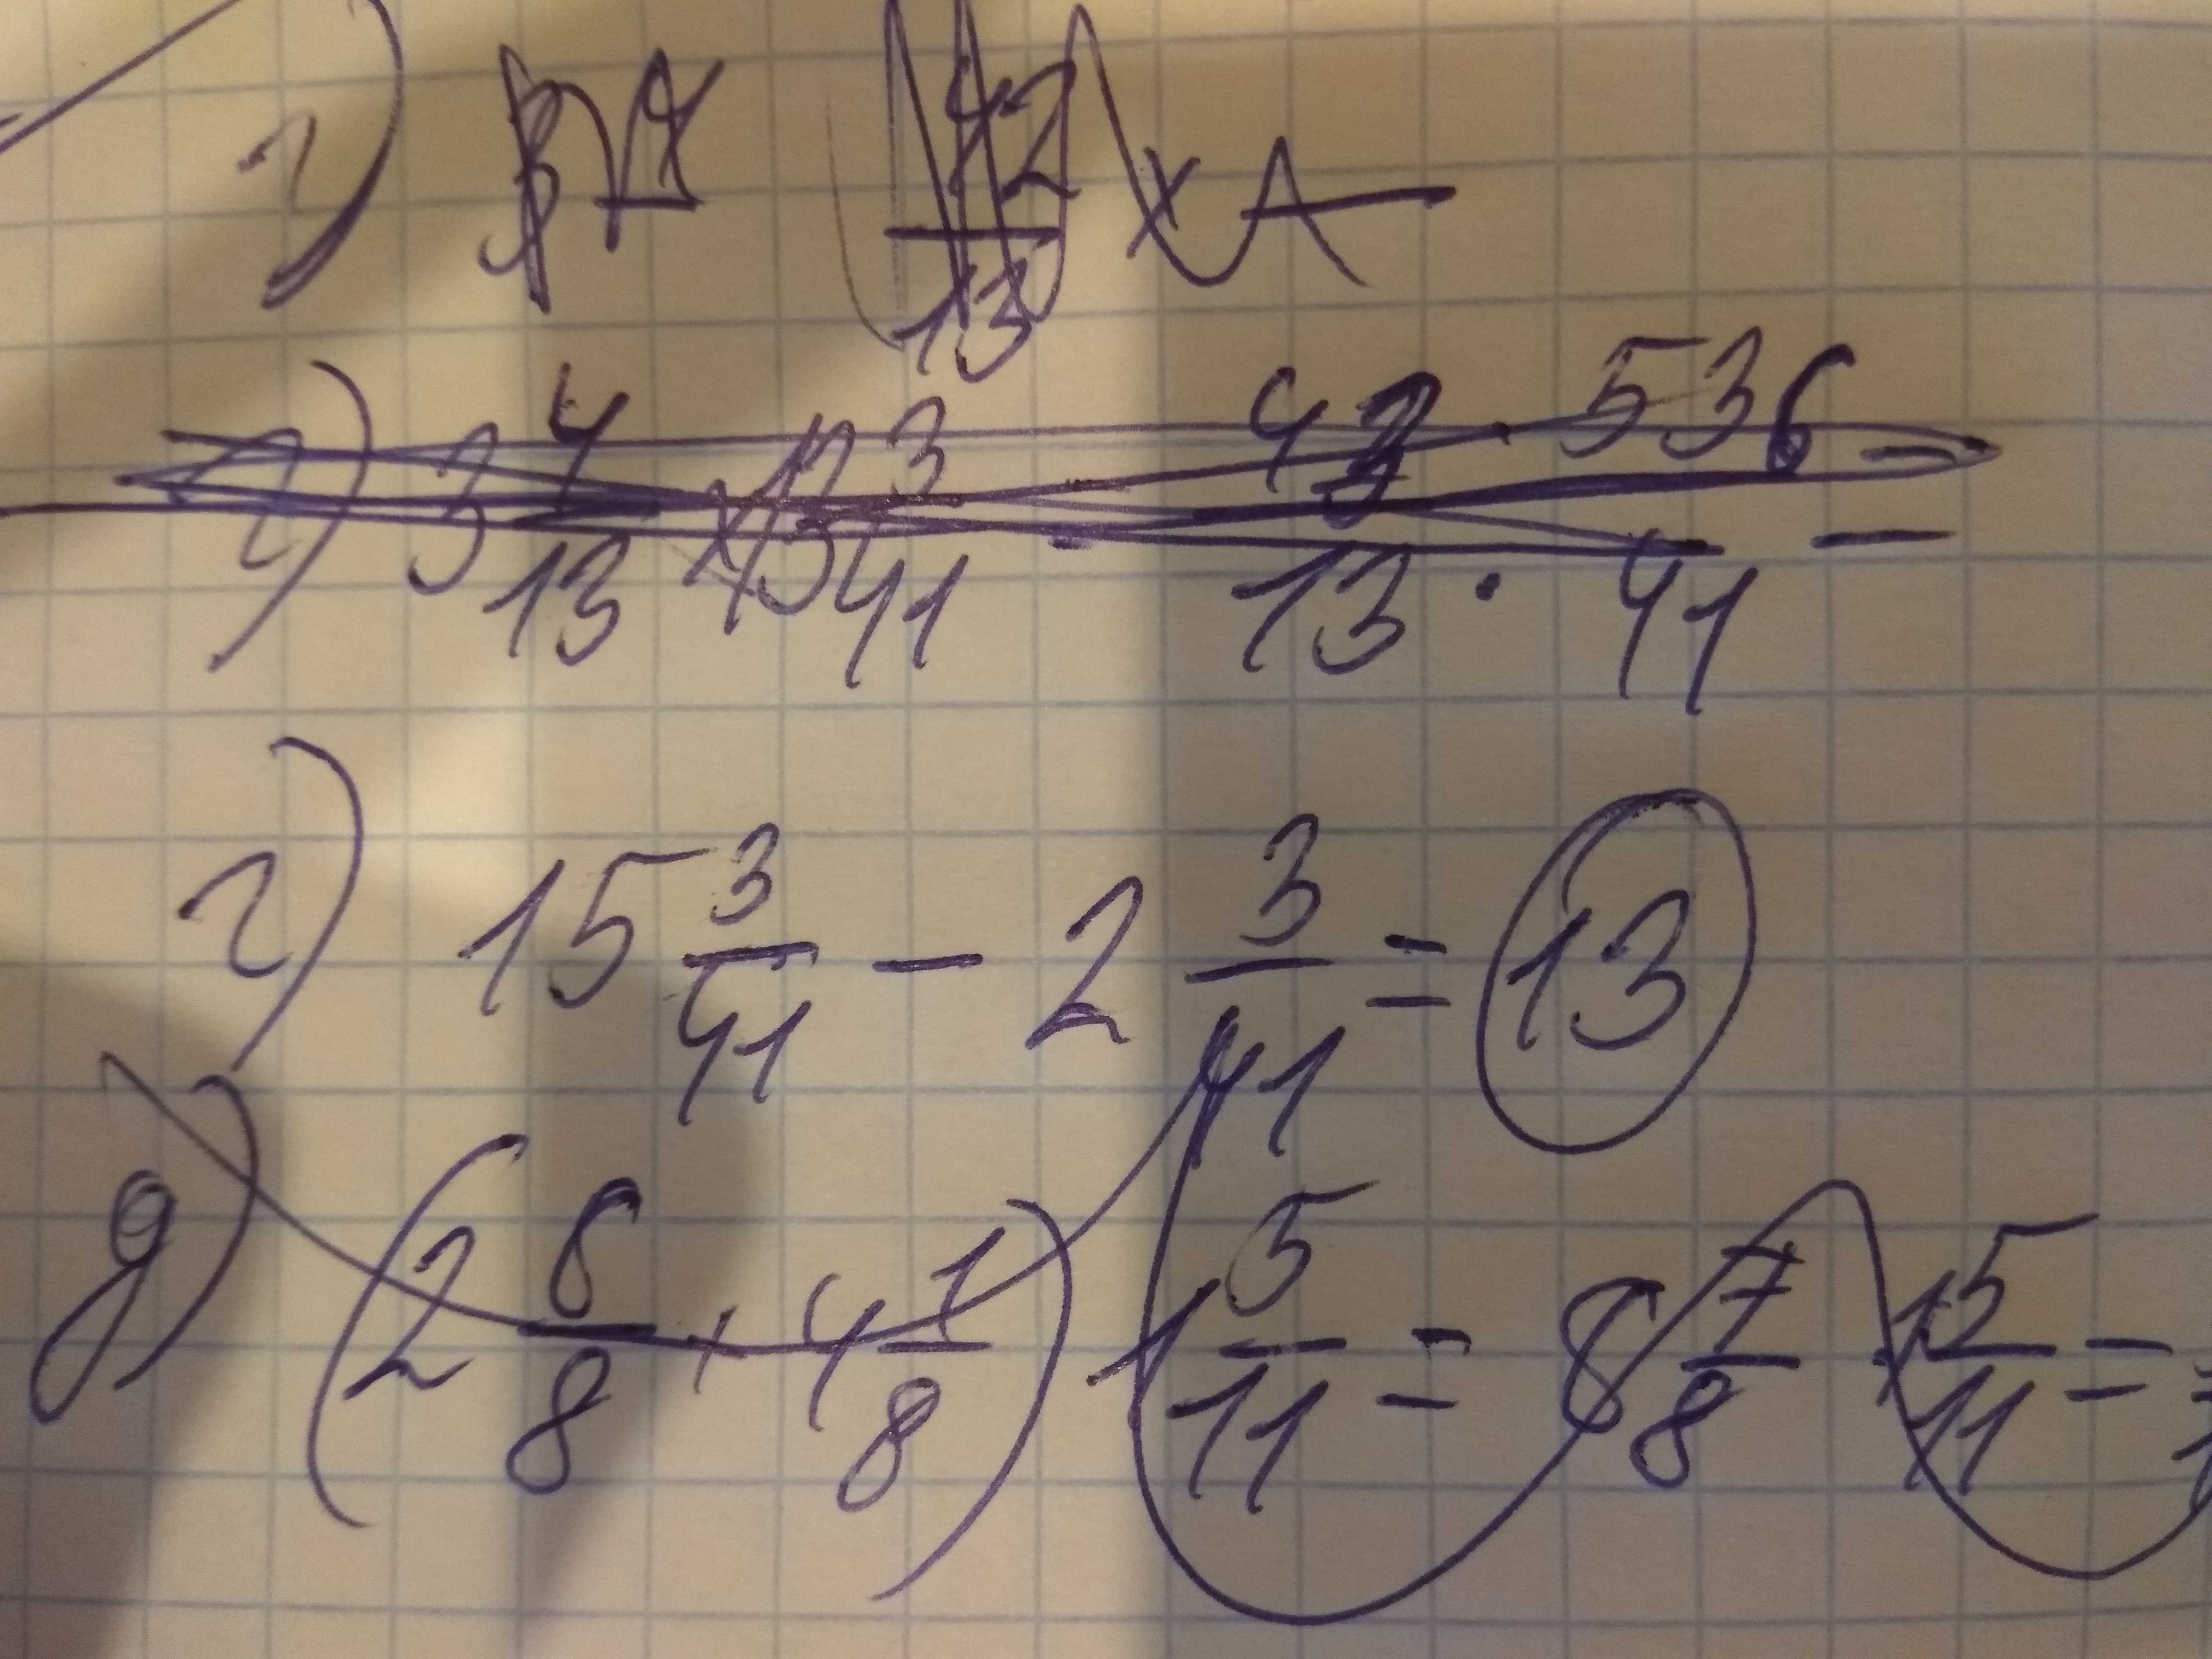 г)
г) 3 4/13 × 13 3/41 = 43 · 536 / 13 · 41 =
г) 15 3/41 − 2 3/41 = 13
д) (2 8/8 + 4 1/8) · 1 5/11 = 8 7/8 · 1 5/11 =